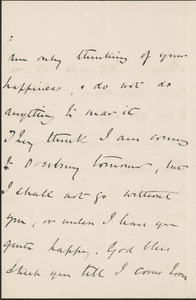 am only thinking of your
happiness, & do not do
anything to mar it
They think I am coming
to tomorrow, but
I shall not go without
you, or unless I leave you
quite happy. God bless
& keep you till I come home